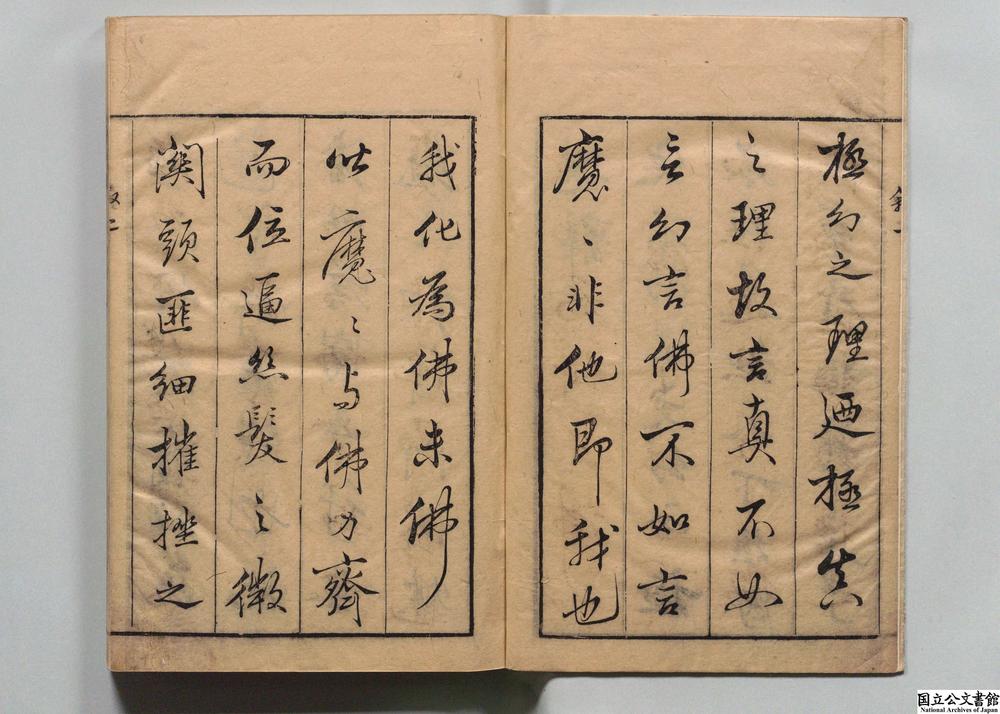 叙一
極幻之理廼極真
之理故言真不如
言幻言佛不如言
魔〻非他即我也
我化為佛未佛
皆魔〻与佛力齊
而位逼絲髮之微
關頭匪細摧挫之
叙二
国立公文書館
National Archives of Japan